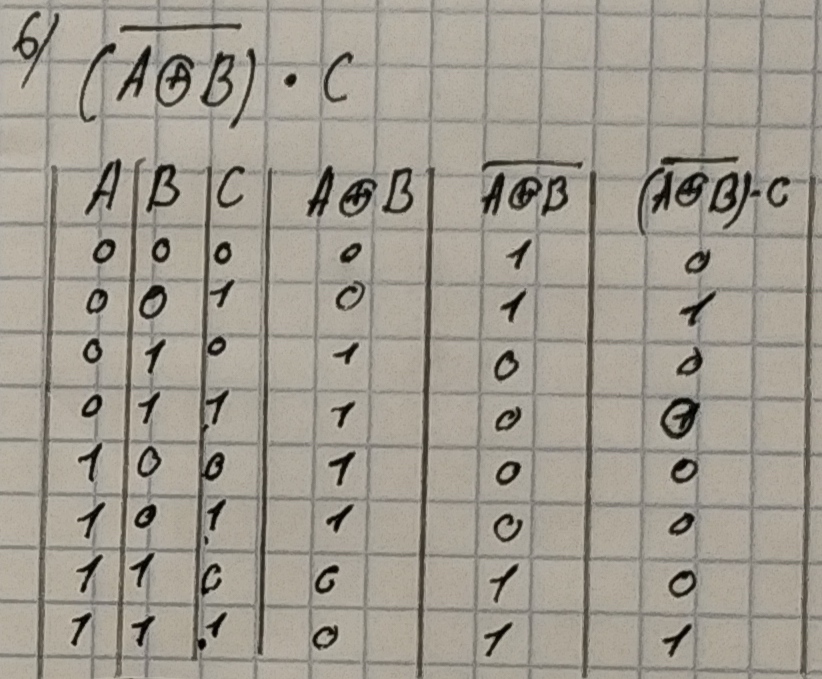 6) (A̅⊕̅B̅) · C
A B C A⊕B A̅⊕̅B̅ (A̅⊕̅B̅)·C
0 0 0 0 1 0
0 0 1 0 1 1
0 1 0 1 0 0
0 1 1 1 0
1 0 0 1 0 0
1 0 1 1 0 0
1 1 0 0 1 0
1 1 1 0 1 1